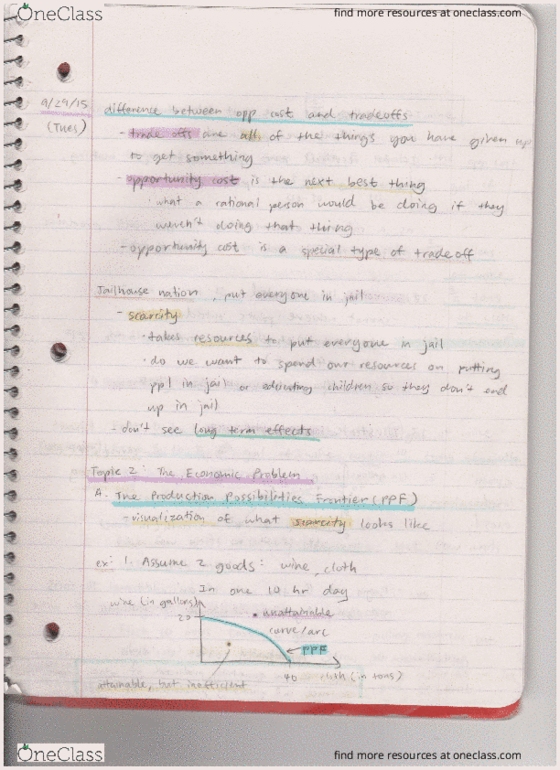 OneClass
find more resources at oneclass.com
9/29/15
(Tues)
difference between opp cost and tradeoffs
- trade offs are all of the things you have given up
to get something
- opportunity cost is the next best thing
· what a rational person would be doing if they
weren't doing that thing
- opportunity cost is a special type of tradeoff
Jailhouse nation, put everyone in jail
- scarcity
· takes resources to put everyone in jail
· do we want to spend our resources on putting
ppl in jail or educating children so they don't end
up in jail
- don't see long term effects
Topic 2: The Economic Problem
A. The Production Possibilities Frontier (PPF)
- visualization of what scarcity looks like
ex: 1. Assume 2 goods: wine, cloth
In one 10 hr day
wine (in gallons)
· unattainable
20
curve/arc
PPF
40
cloth (in tons)
attainable, but inefficient
OneClass
find more resources at oneclass.com